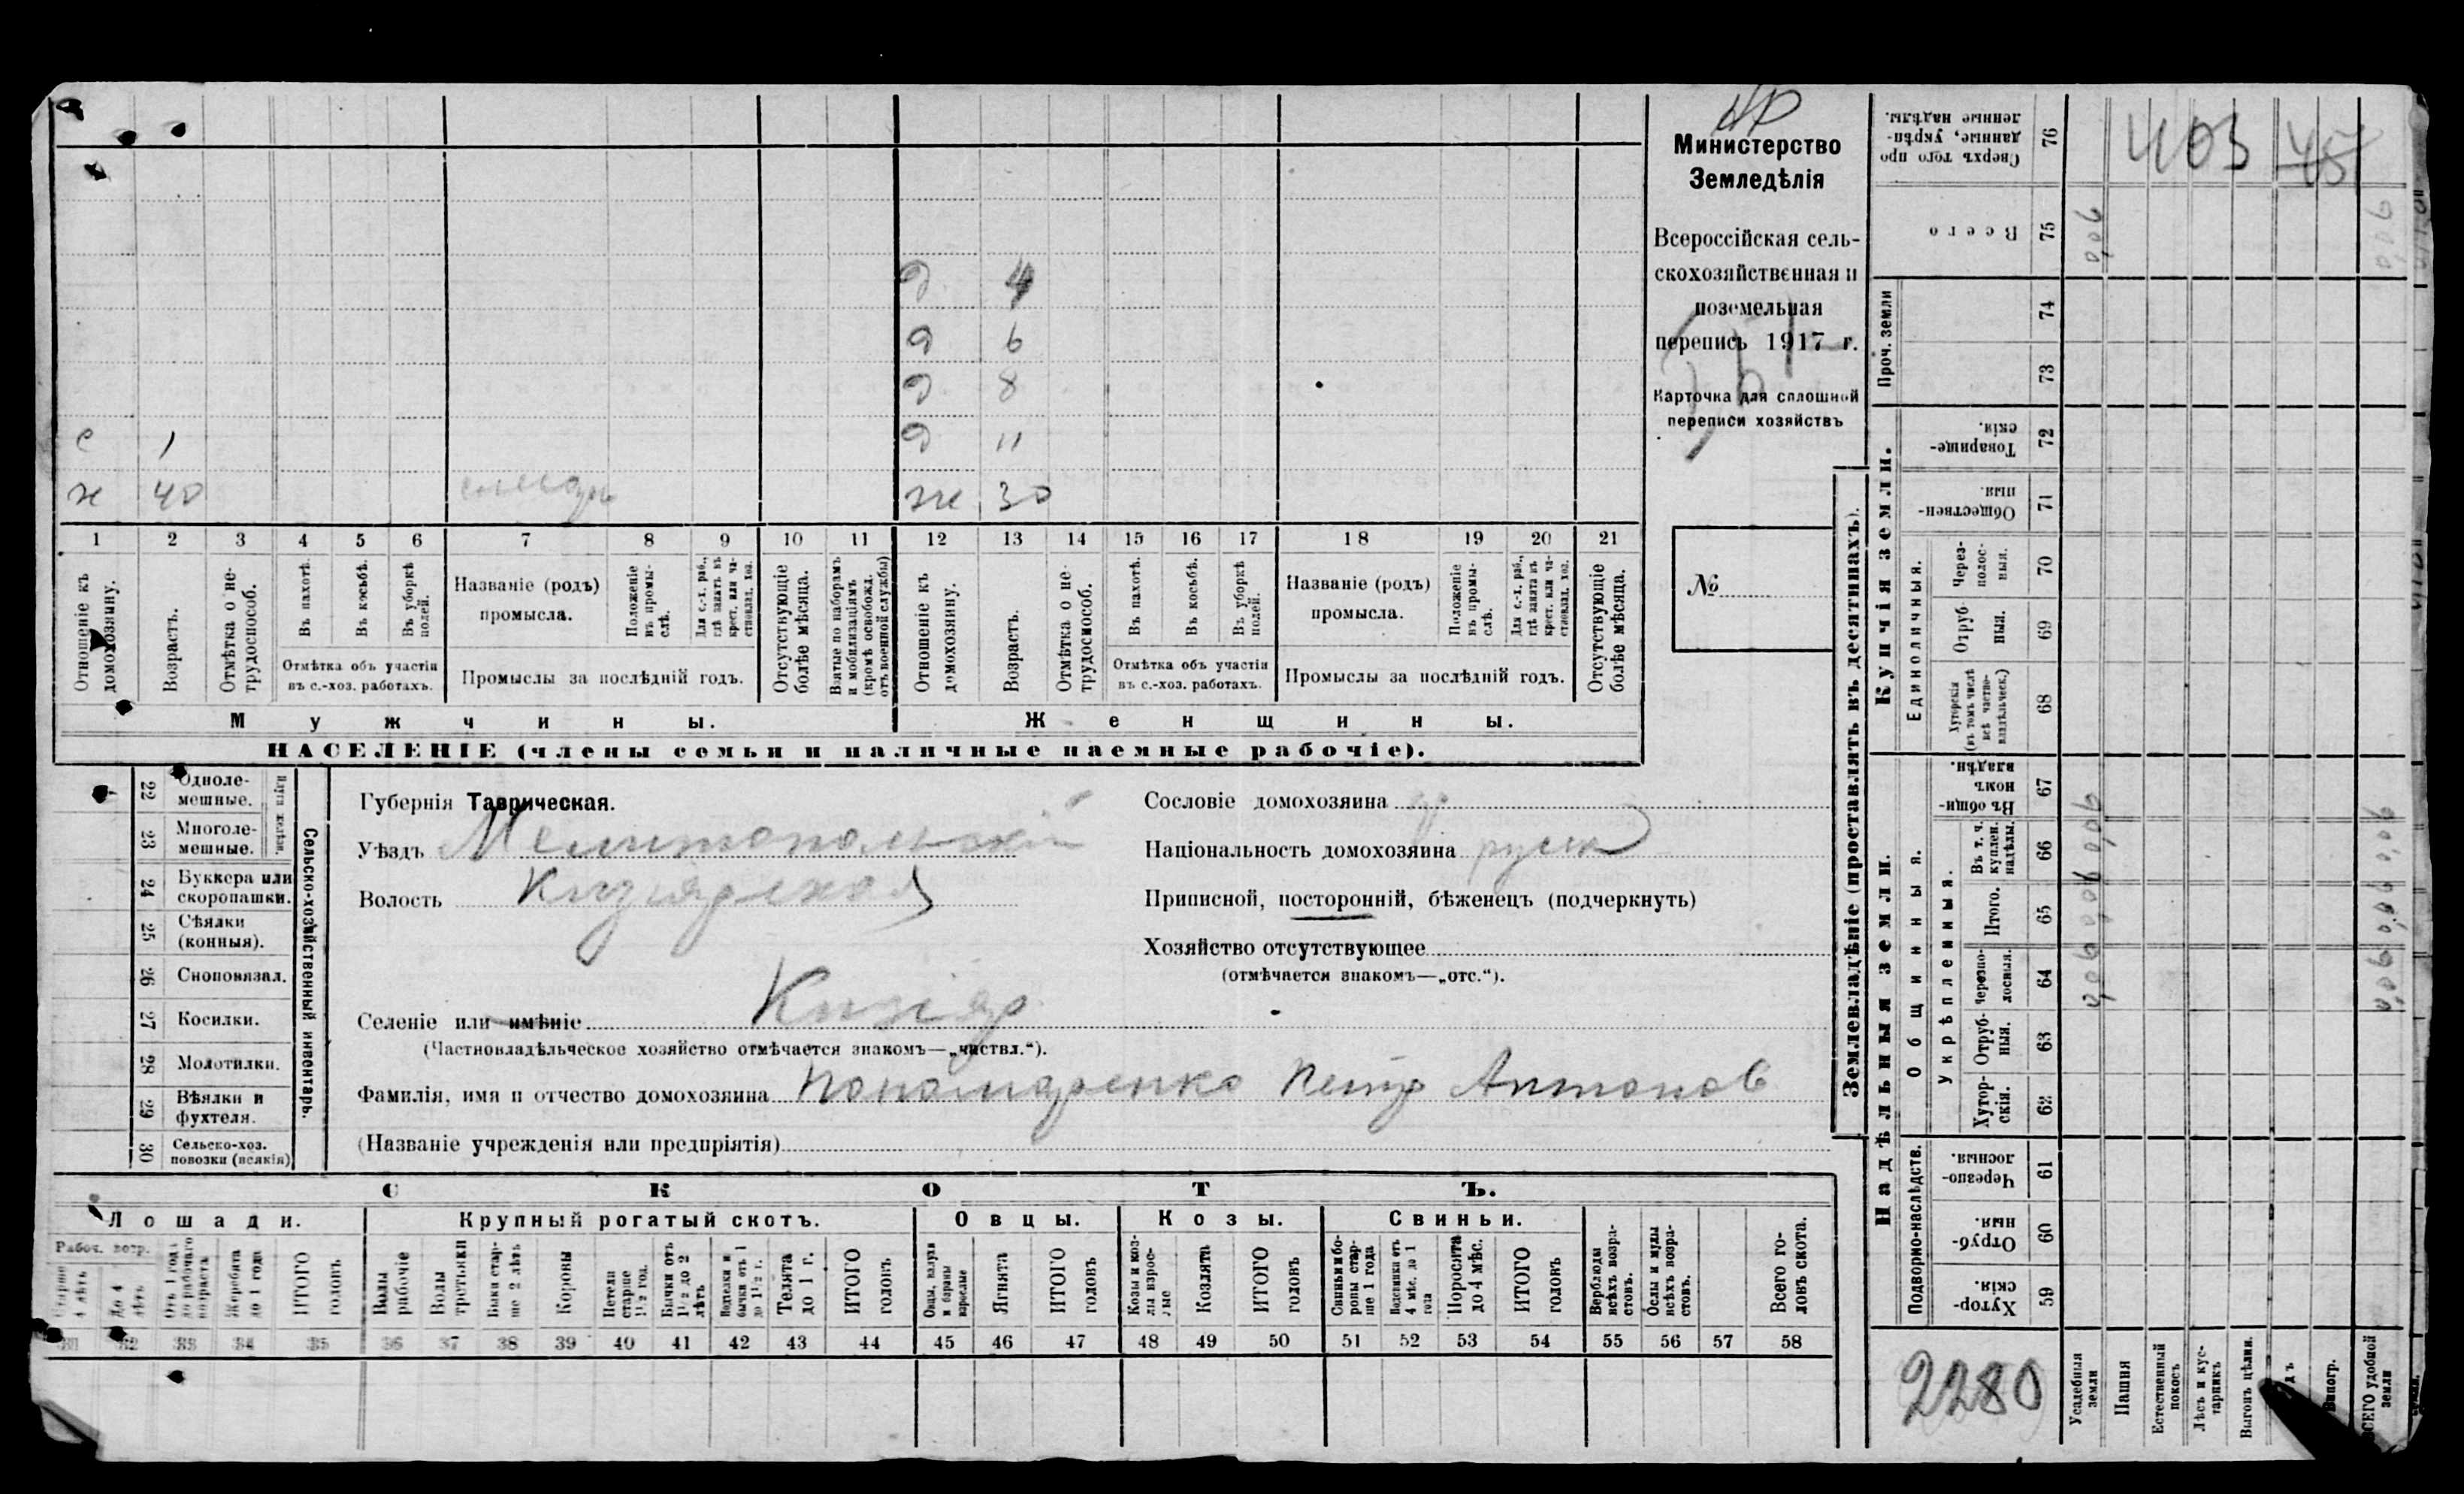 4
6
8
с 1
11
х 40 слесарь
ж 30
1 2 3 4 5 6 7 8 9 10 11 12 13 14 15 16 17 18 19 20 21
Отношеніе къ домохозяину.
Возрастъ.
Отмѣтка о не-трудоспособ.
Въ пахотѣ.
Въ косьбѣ.
Въ уборкѣ полей.
Отмѣтка объ участіи
въ с.-хоз. работахъ.
Названіе (родъ)
промысла.
Положеніе въ промы-слѣ.
Для с.-х. раб., гдѣ занятъ въ крест. или ча-стновлад. хоз.
Промыслы за послѣдній годъ.
Отсутствующіе болѣе мѣсяца.
Взятые по наборамъ и мобилизаціямъ (кромѣ освобожд. отъ военной службы)
Отношеніе къ домохозяину.
Возрастъ.
Отмѣтка о не-трудоспособ.
Въ пахотѣ.
Въ косьбѣ.
Въ уборкѣ полей.
Отмѣтка объ участіи
въ с.-хоз. работахъ.
Названіе (родъ)
промысла.
Положеніе въ промы-слѣ.
Для с.-х. раб., гдѣ занята въ крест. или ча-стновлад. хоз.
Промыслы за послѣдній годъ.
Отсутствующіе болѣе мѣсяца.
Мужчины.
Женщины.
НАСЕЛЕНІЕ (члены семьи и наличные наемные рабочіе).
Министерство
Земледѣлія
Всероссійская сель-
скохозяйственная и
поземельная
перепись 1917 г.
Карточка для сплошной
переписи хозяйствъ
№
22 Одноле-мешные.
23 Многоле-мешные.
24 Буккера или скоропашки.
25 Сѣялки (конныя).
26 Сноповязал.
27 Косилки.
28 Молотилки.
29 Вѣялки и фухтеля.
30 Сельско-хоз. повозки (всякія)
Сельско-хозяйственный инвентарь.
Губернія Таврическая.
Уѣздъ Мелитопольскій
Волость Кизіярская
Селеніе или имѣніе Кизіяр
(Частновладѣльческое хозяйство отмѣчается знакомъ—„чвствл.“).
Фамилія, имя и отчество домохозяина Пономаренко Петр Антонов
(Названіе учрежденія или предпріятія)
Сословіе домохозяина
Національность домохозяина русск
Приписной, посторонній, бѣженецъ (подчеркнуть)
Хозяйство отсутствующее
(отмѣчается знакомъ—„отс.“).
СКОТЪ.
Лошади.
Крупный рогатый скотъ.
Овцы.
Козы.
Свиньи.
Рабоч. возр.
Старше 4 лѣтъ
До 4 лѣтъ
Отъ 1 года до рабочаго возраста
Жеребята до 1 года
ИТОГО головъ
Волы рабочіе
Волы третьяки
Быки стар-ше 2 лѣтъ
Коровы
Нетели старше 1½ год.
Бычки отъ 1½ до 2 лѣтъ
Подтелки и бычки отъ 1 до 1½ г.
Телята до 1 г.
ИТОГО головъ
Овцы, валухи и бараны взрослые
Ягнята
ИТОГО головъ
Козы и коз-лы взрос-лые
Козлята
ИТОГО головъ
Свиньи и бо-ровы стар-ше 1 года
Подсвинки отъ 4 мѣс. до 1 года
Поросята до 4 мѣс.
ИТОГО головъ
Верблюды всѣхъ возра-стовъ.
Ослы и мулы всѣхъ возра-стовъ.
Всего го-ловъ скота.
31 32 33 34 35 36 37 38 39 40 41 42 43 44 45 46 47 48 49 50 51 52 53 54 55 56 57 58
Землевладѣніе (проставлять въ десятинахъ).
Сверхъ того про-данные, укрѣп-ленные надѣлы. 76
403 45
Всего 75
Проч. земли
74
73
Купчія земли.
Товарище-скія. 72
Обществен-ныя. 71
Единоличныя.
Через-полос-ныя. 70
Отруб-ныя. 69
Хуторскія (въ томъ числѣ всѣ частно-владѣльческ.) 68
Надѣльныя земли.
Общинныя.
Въ общин-номъ владѣн. 67
Укрѣпленныя.
Въ т. ч. куплен. надѣлы. 66
Итого. 65
Черезпо-лосныя. 64
Отруб-ныя. 63
Хутор-скія. 62
Подворно-наслѣдств.
Черезпо-лосныя. 61
Отруб-ныя. 60
Хутор-скія. 59
2280
Усадебныя земли
Пашня
Естественный покосъ
Лѣсъ и кус-тарникъ
Выгонъ цѣлин.
Виногр.
ВСЕГО удобной земли